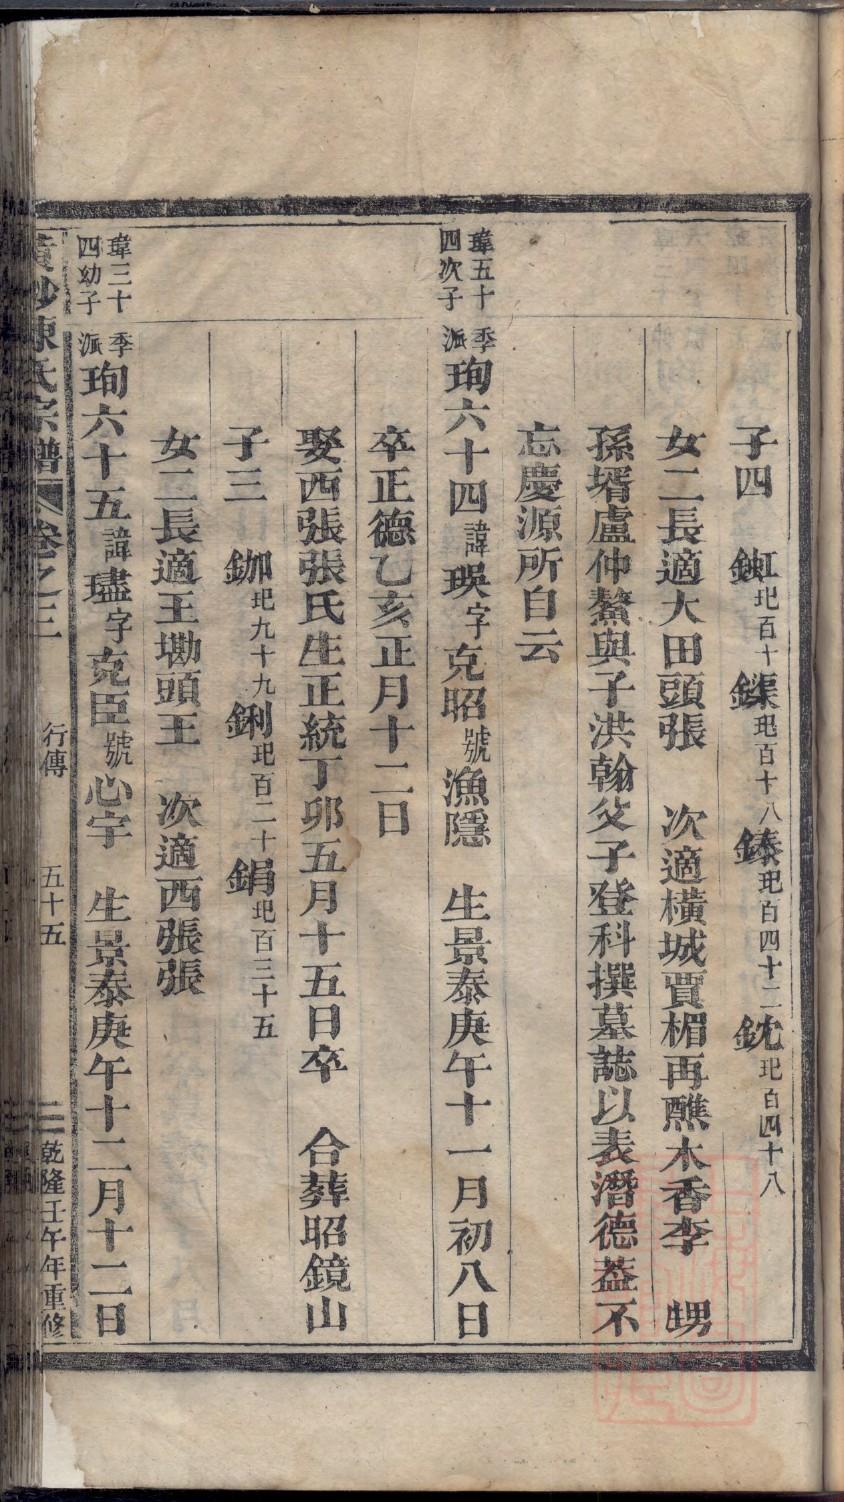 子四 𨧨虹玘百十 鏁渠玘百十八 𨨏泰玘百四十二 鈂沈玘百四十八
女二長適大田頭張 次適橫城賈楣再醮木香李 甥
孫壻盧仲鰲與子洪翰父子登科撰墓誌以表潛德葢不
忘慶源所自云
瑋五十四次子 季派 珣六十四諱瑛字克昭號漁隱 生景泰庚午十一月初八日
卒正德乙亥正月十二日
娶西張張氏生正統丁卯五月十五日卒 合葬昭鏡山
子三 鉫玘九十九 鋓玘百二十 鋗玘百三十五
女二長適王墈頭王 次適西張張
瑋三十四幼子 季派 珣六十五諱璶字克臣號心宇 生景泰庚午十二月十二日
陳氏宗譜 卷之三 行傳 五十五 乾隆壬午年重修